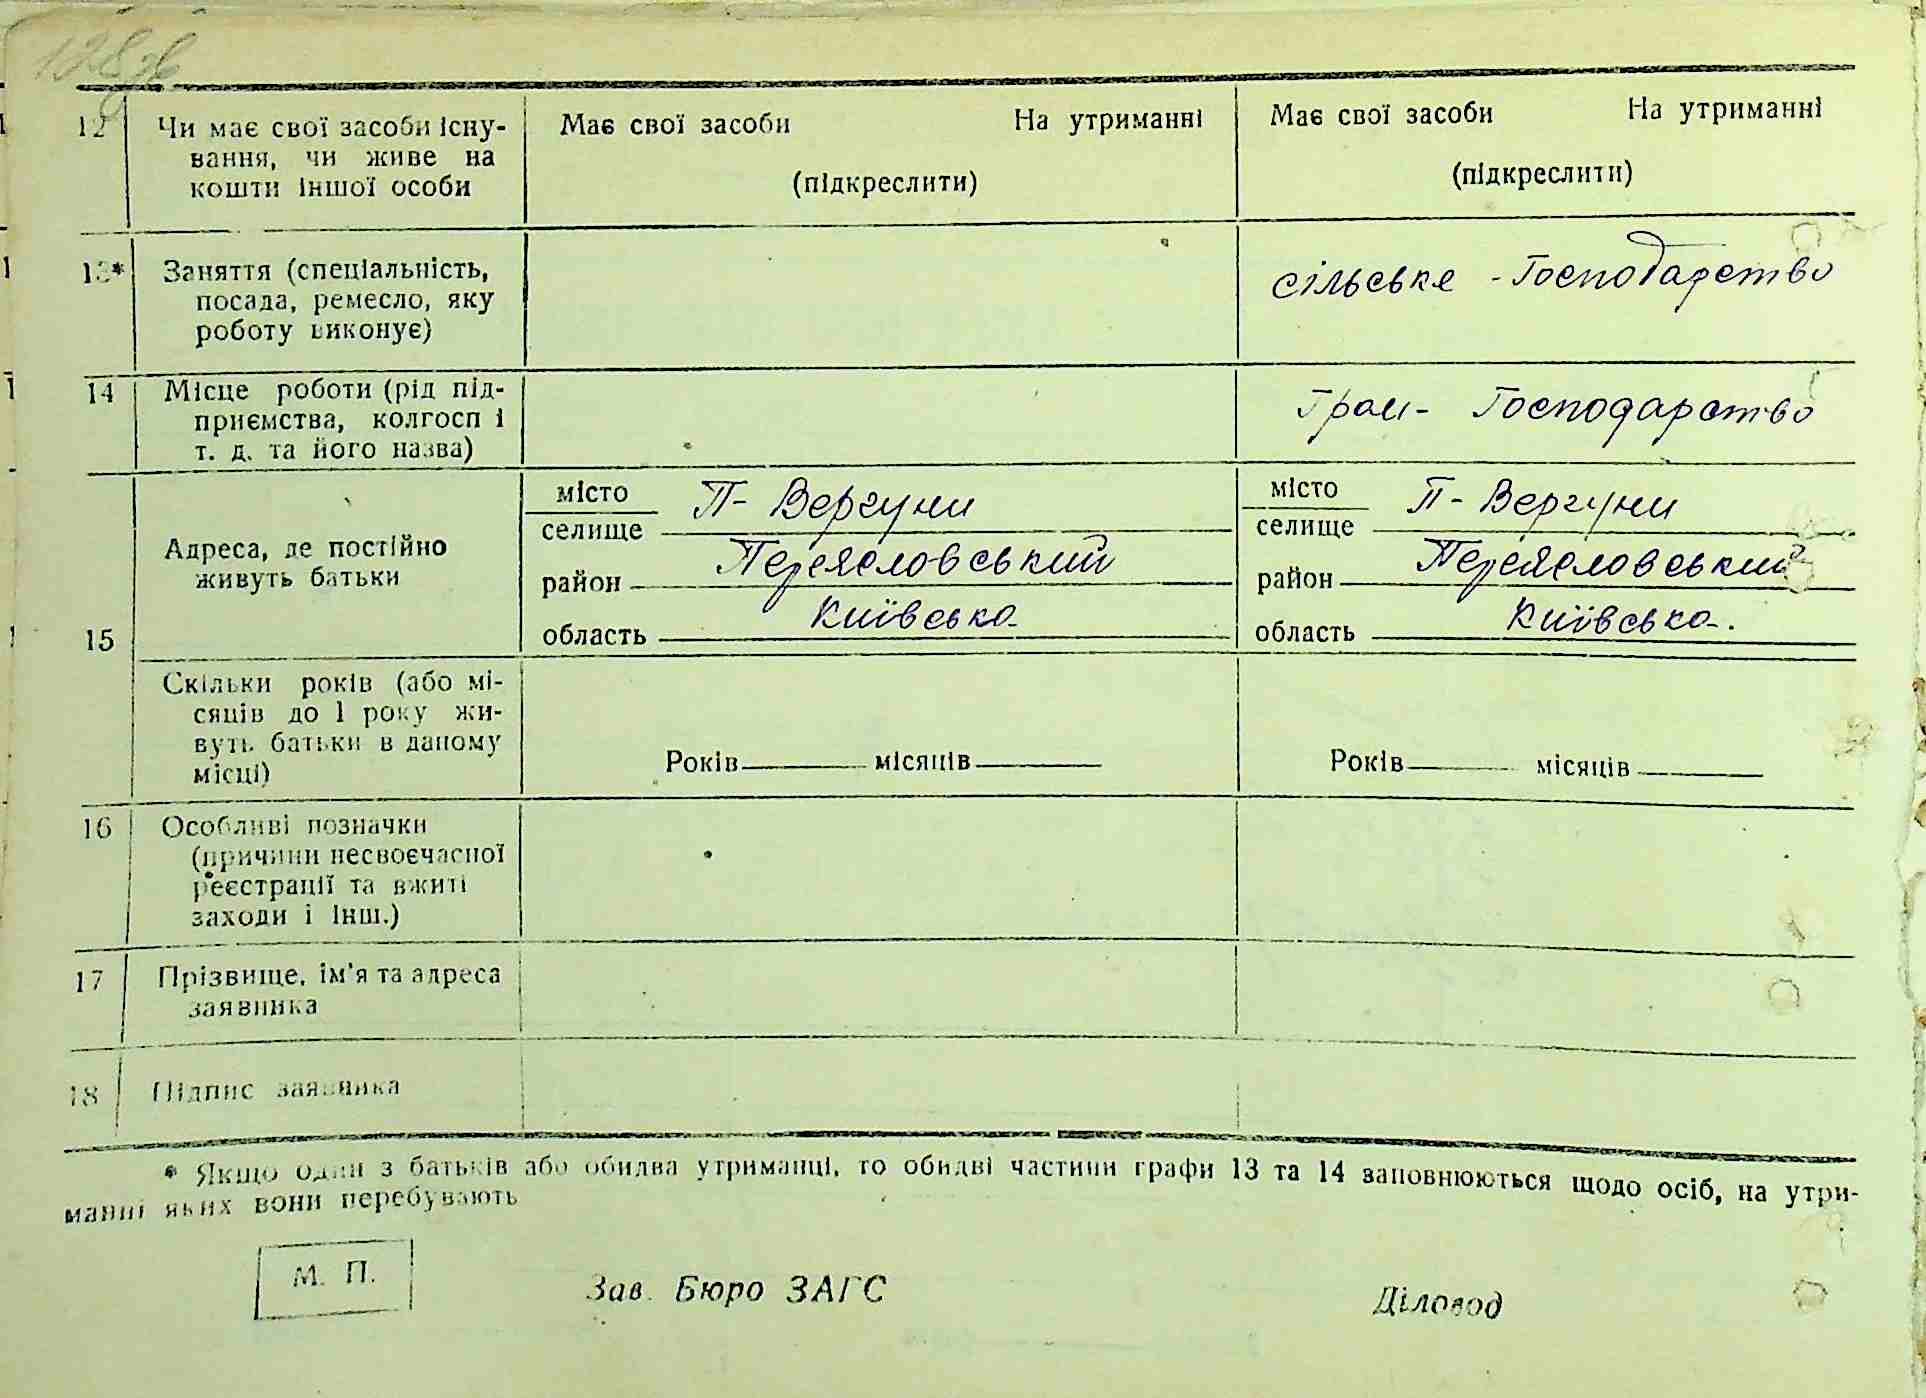 128 зв
12 Чи має свої засоби існу- Має свої засоби На утриманні Має свої засоби На утриманні
вання, чи живе на
кошти іншої особи (підкреслити) (підкреслити)
13* Заняття (спеціальність, сільське - Господарство
посада, ремесло, яку
роботу виконує)
14 Місце роботи (рід під- Гром- Господарство
приємства, колгосп і
т. д. та його назва)
15 Адреса, де постійно
живуть батьки
місто П- Вергуни місто П- Вергуни
селище селище
район Переяславський район Переяславський
область Київська область Київська.
Скільки років (або мі-
сяців до 1 року жи-
вуть батьки в даному
місці) Років місяців Років місяців
16 Особливі позначки
(причини несвоєчасної
реєстрації та вжиті
заходи і інш.)
17 Прізвище, ім'я та адреса
заявника
18 Підпис заявника
* Якщо один з батьків або обидва утриманці, то обидві частини графи 13 та 14 заповнюються щодо осіб, на утри-
манні яких вони перебувають
М. П. Зав. Бюро ЗАГС Діловод